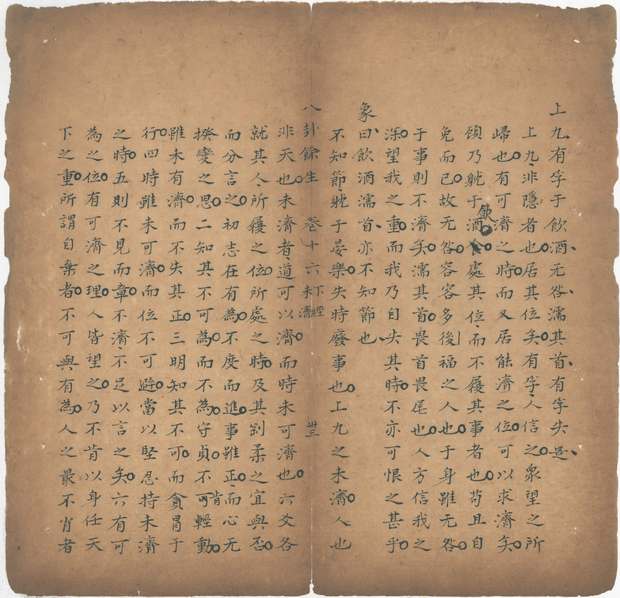 上九有孚于飲酒无咎濡其首有孚失是
上九非隱者也居其位矣有孚人信之眾望之所
歸也有可濟之時而又居能濟之位可以求濟矣
頋乃躭于酒飲處其位而不履其事者也苟且自
免而已故无咎容容多後福之人也于身雖无咎
于事則不濟矣濡其首畏首畏尾也人方信我之
深望我之重而我乃自失其時不亦可恨之甚乎
象曰飲酒濡首亦不知節也
不知節躭于晏樂失時廢事也上九之未濟人也
八卦餘生 卷十六 下經 未濟 卅三
非天也未濟者道可以濟而時未可濟也六爻各
就其人所履之位所處之時及其剛柔之宜與否
而分言之初志在有為不度而進事雖正而心无
揆變之思二知其不可為而不為守貞不肯輕動
雖未有濟而不失其正三明知其不可而貪冒于
行四時雖未可濟而位不可避當以堅忍持未濟
之時五則不見而章不濟不足以言之矣六有可
為之位有可濟之理人皆望之乃不肯以身任天
下之重所謂自棄者不可與有為人之最不肖者